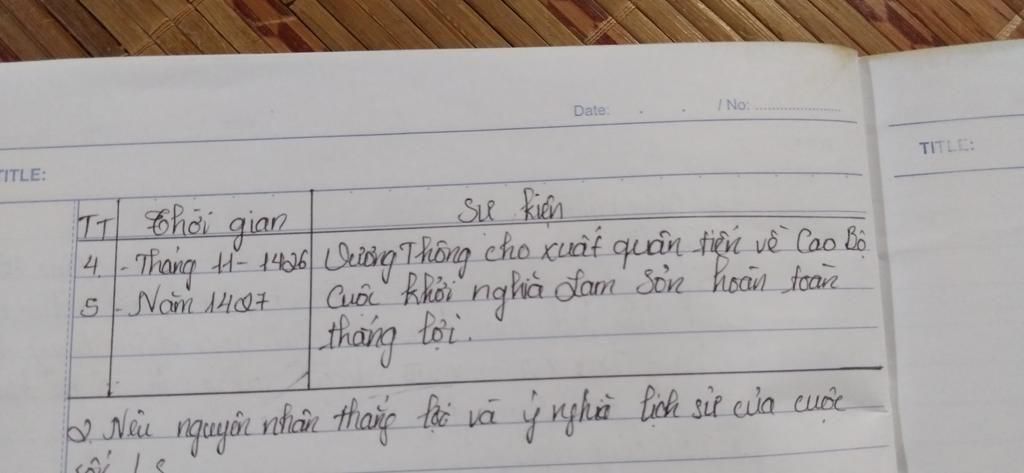 Date: . . / No: ....................
TITLE:
TITLE:
TT Thời gian Sự kiện
4. - Tháng 11 - 1426 Vương Thông cho xuất quân tiến về Cao Bộ
5 - Năm 1427 Cuộc khởi nghĩa Lam Sơn hoàn toàn
thắng lợi.
2. Nêu nguyên nhân thắng lợi và ý nghĩa lịch sử của cuộc